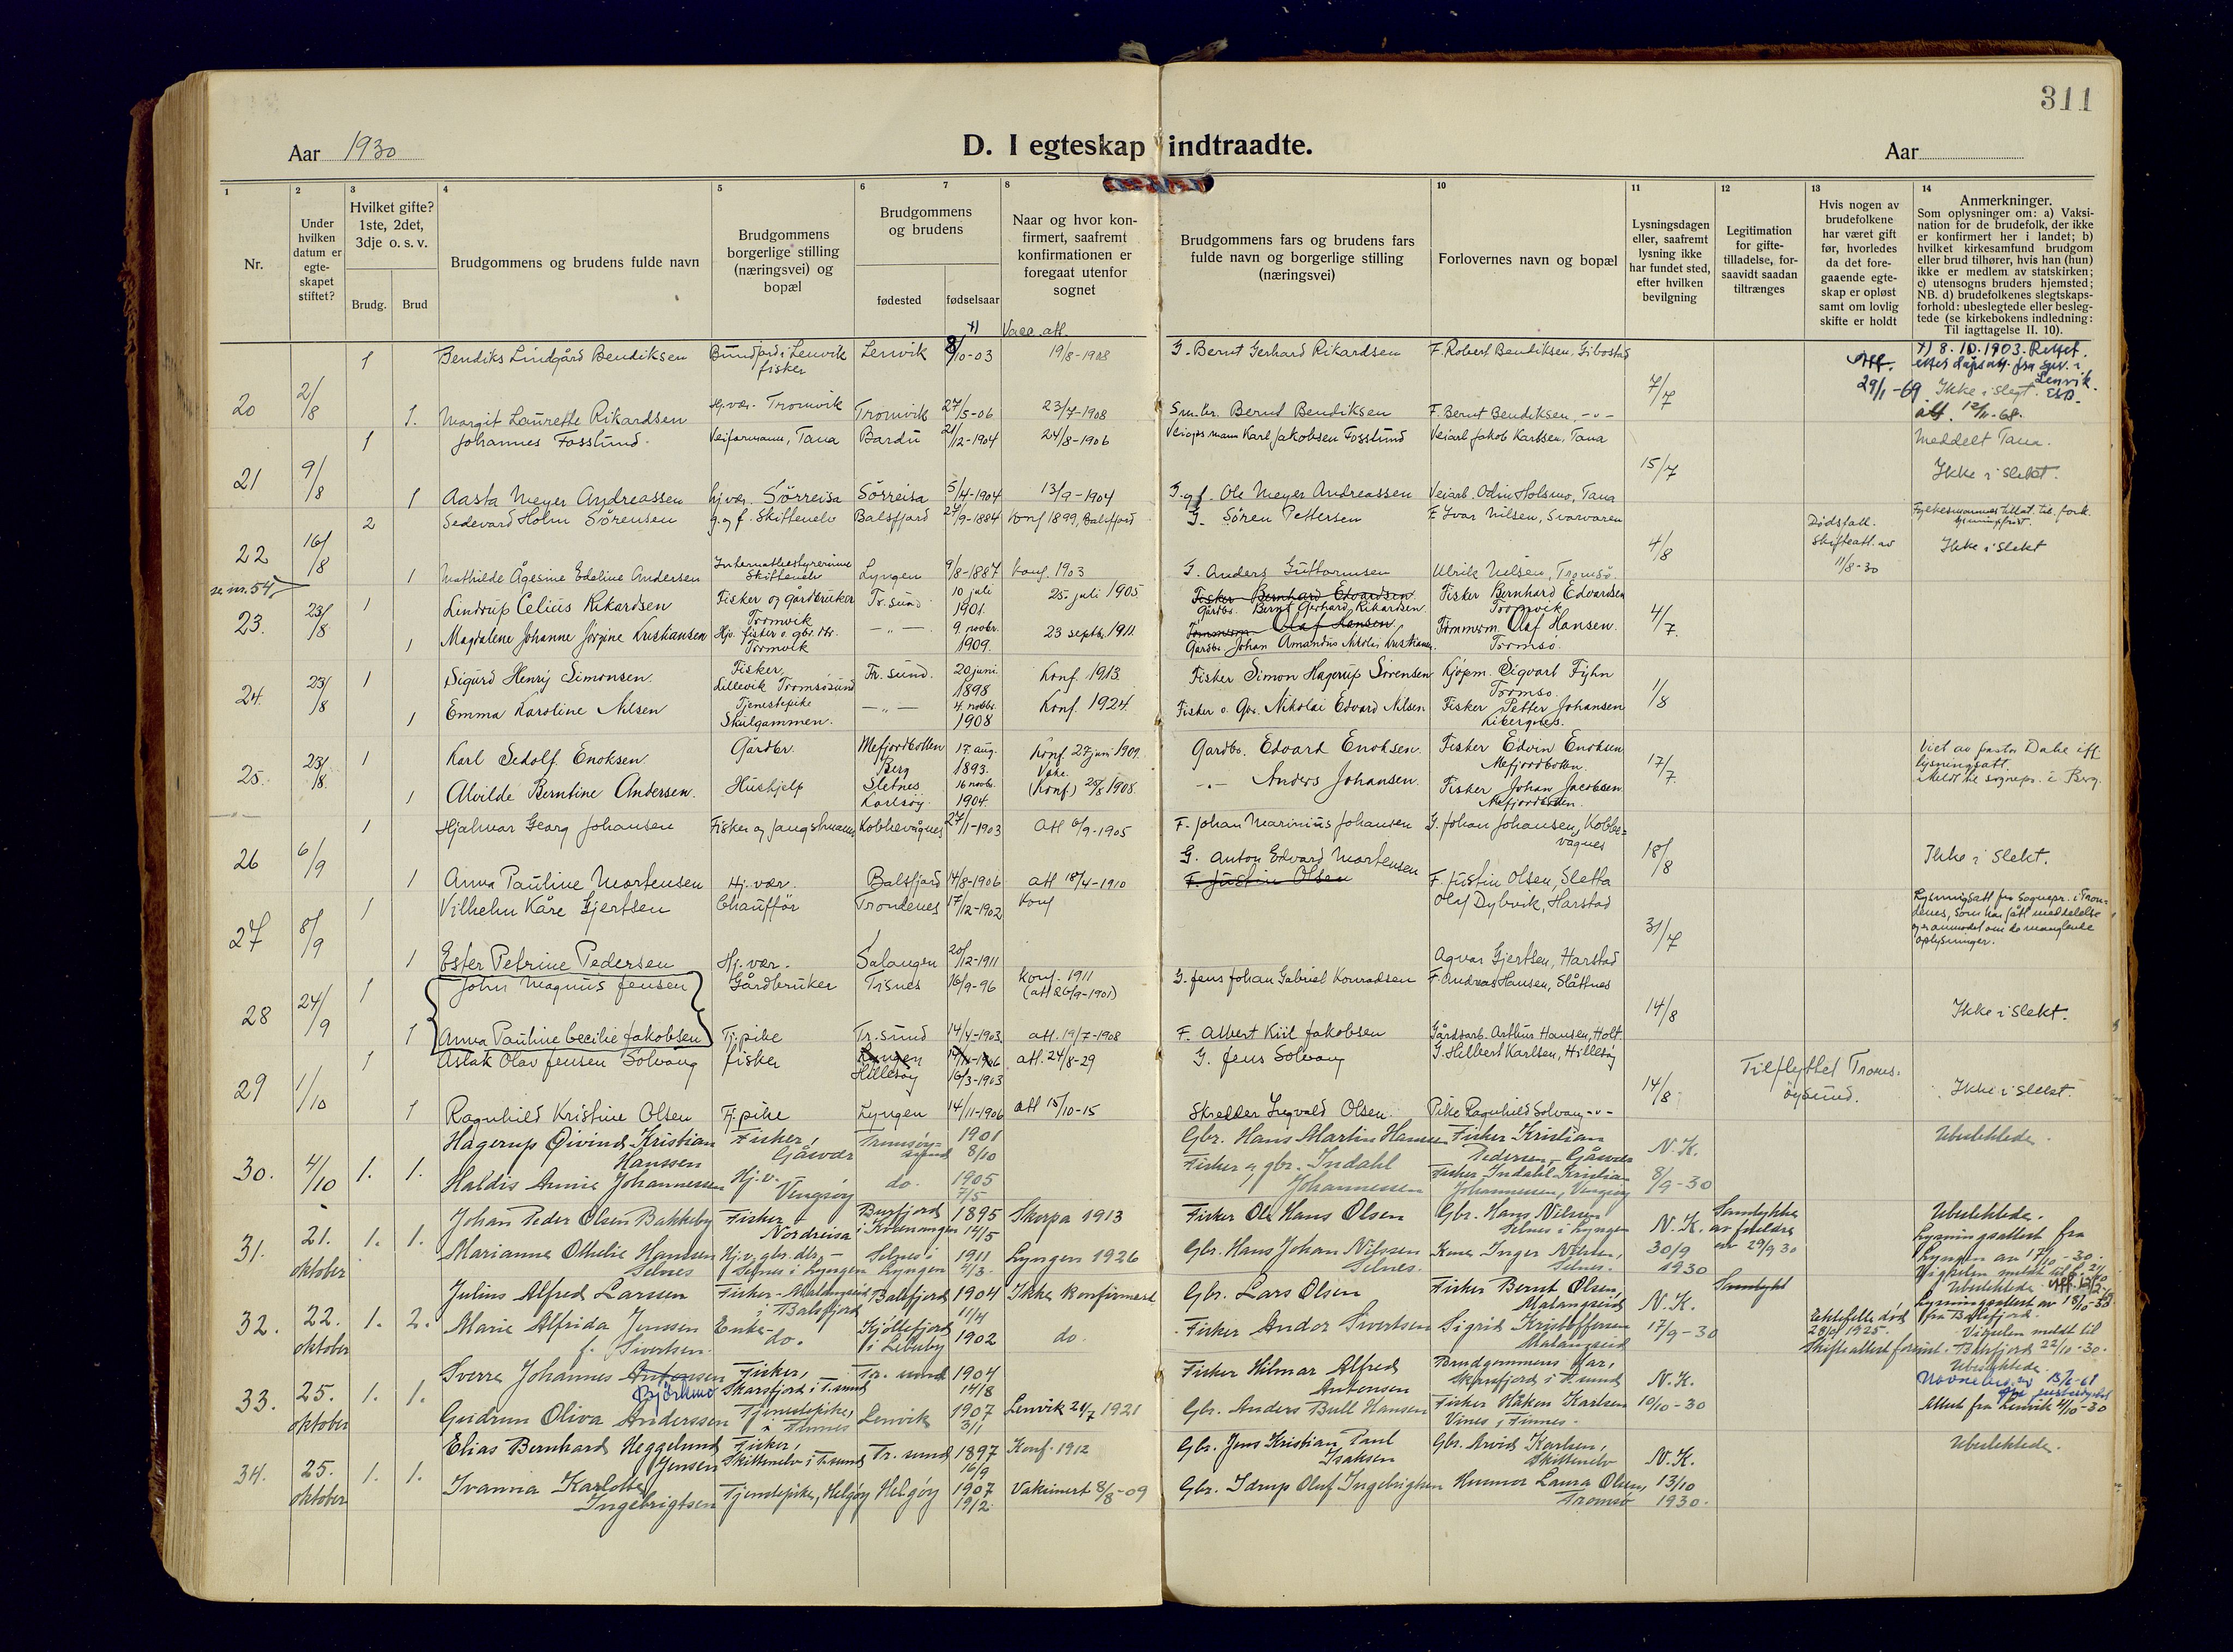 311
Aar 1930
D. I egteskap indtraadte.
Aar
1 2 3 4 5 6 7 8 10 11 12 13 14
Nr.
Under hvilken datum er egte-skapet stiftet?
Hvilket gifte? 1ste, 2det, 3dje o. s. v.
Brudg. Brud
Brudgommens og brudens fulde navn
Brudgommens borgerlige stilling (næringsvei) og bopæl
Brudgommens og brudens
fødested fødselsaar
Naar og hvor kon-firmert, saafremt konfirmationen er foregaat utenfor sognet
Brudgommens fars og brudens fars fulde navn og borgerlige stilling (næringsvei)
Forlovernes navn og bopæl
Lysningsdagen eller, saafremt lysning ikke har fundet sted, efter hvilken bevilgning
Legitimation for gifte-tilladelse, for-saavidt saadan tiltrænges
Hvis nogen av brudefolkene har været gift før, hvorledes da det fore-gaaende egte-skap er opløst samt om lovlig skifte er holdt
Anmerkninger.
Som oplysninger om: a) Vaksi-nation for de brudefolk, der ikke er konfirmert her i landet; b) hvilket kirkesamfund brudgom eller brud tilhører, hvis han (hun) ikke er medlem av statskirken; c) utensogns bruders hjemsted; NB. d) brudefolkenes slegtskaps-forhold: ubeslegtede eller besleg-tede (se kirkebokens indledning: Til iagttagelse II. 10).
x) Vacc. att.
1 Bendiks Lindgård Bendiksen Lenvik 8/10-03 19/8-1908 G. Bernt Gerhard Rikardsen F. Robert Bendiksen, Gibostad x) 8.10.1903. Rettet
fisker
20 2/8 7/7 29/1-69 Ikke i slegt.
1. Margit Laurette Rikardsen Hj.vær. Tromvik Tromvik 27/5-06 23/7-1908 Bernt Bendiksen F. Bernt Bendiksen -"-
1 Johannes Fosslund Veiformann, Tana Bardu 21/12-1904 24/8-1906 Karl Jakobsen Fosslund Veiarb. Jakob Karlsen, Tana Meddelt Tana.
21 9/8 15/7 Ikke i slekt.
1 Aasta Meyer Andreassen Hj.vær. Sörreisa Sörreisa 5/4-1904 13/9-1904 G. og f. Ole Meyer Andreassen Veiarb. Odin Holsmo, Tana
2 Sedevard Holm Sörensen g. og f. Skittenelv Balsfjord 27/9-1884 Konf 1899, Balsfjord G. Sören Pettersen F. Ivar Nilsen, Svarvaren
22 16/8 4/8 Dødsfall. Skifteatt. av 11/8-30 Ikke i slekt
1 Mathilde Ågesine Edeline Andersen Internatbestyrerinne Skittenelv Lyngen 9/8-1887 Konf. 1903 G. Anders Guttormsen Ulrik Nilsen, Tromsö.
se nr. 54
23. 23/8 1 Lindrup Celius Rikardsen Fisker og gårdbruker Tromvik Tr.sund 10 juli 1901. 25 juli 1905 Fisker Bernhard Edvardsen Gårdbr. Bernt Gerhard Rikardsen. Fisker Bernhard Edvardsen Tromvik 4/7.
1 Magdalene Johanne Jörgine Kristiansen Hj. fisker o. gbr. Tromvik -"- 9. novbr. 1909. 23 septbr 1911 Olaf Hansen Gårdbr Johan Amandus Nikolai Kristiansen. Olaf Hansen. Tromsö.
24. 23/8 1 Sigurd Henry Simonsen. Fisker, Lillevik Tromsøsund Tr. sund. 20 juni. 1898 Konf. 1913. Fisker Simon Hagerup Sörensen Kjöpm. Sigvart Fyhn Tromsö. 1/8
1 Emma Karoline Nilsen Tjenestepike Skulgammen. -"- 4. novbr. 1908 Konf. 1924. Fisker o. Gbr. Nikolai Edvard Nilsen Fisker Petter Johansen
25. 23/8. 1 Karl Sedolf Enoksen. Gårdbr. Mefjordbotten Berg 17. aug. 1893. Konf. 27 juni 1909. Gårdbr. Edvard Enoksen. Fisker Edvin Enoksen Mefjordbotten. 17/7. Viet av pastor Dahe
1 Alvilde Berntine Andersen. Hushjelp Sletnes Karlsöy. 16 novbr. 1904. (Konf) 25/8 1908. -"- Anders Johansen. Fisker Johan Jacobsen Mefjordbotten. i Berg.
1 Hjalmar Georg Johansen Fisker og fangstmann Kobbevågnes 27/1-1903 Att 6/9-1905 F. Johan Marinius Johansen G. Johan Johansen, Kobbe-vågnes
26 6/9 18/8 Ikke i slekt.
1 Anna Pauline Mortensen Hj. vær. Balsfjord 14/8-1906 att 18/4-1910 G. Anton Edvard Mortensen F. Justin Olsen F. Justin Olsen, Sletta
1 Vilhelm Kåre Gjertsen Chaufför Trondenes 17/12-1902 Konf Olaf Dybvik, Harstad
27 8/9 31/7
1 Ester Petrine Pedersen Hj. vær. Salangen 20/12-1911 Agvar Gjertsen, Harstad
1 John Magnus Jensen Gårdbruker Tisnes 16/9-96 Konf. 1911 (att 26/9-1901) G. Jens Johan Gabriel Konradsen F. Andreas Hansen, Slåttnes
28 24/9 14/8 Ikke i slekt.
1 Anna Pauline Cecilie Jakobsen Tj.pike Tr.sund 14/4-1903. att. 19/7-1908 F. Albert Kiil Jakobsen Gårdsarb. Arthur Hansen, Holt
1 Aslak Olav Jensen Solvang fisker Lyngen Hillesöy 16/3-1903 att. 24/8-29 G. Jens Solvang G. Hilbert Karlsen, Hillesöy
29 1/10 14/8 Tilflyttet Troms-öysund. Ikke i slekt.
1 Ragnhild Kristine Olsen Tj.pike Lyngen 14/11-1906 att 15/10-15 Skredder Ingvald Olsen. Pike Ragnhild Solvang -"-
30. 4/10 1. 1. Hagerup Öivind Kristian Hanssen Fisker, Gåsvær Tromsöy-sund 1901 8/10 Gbr. Hans Martin Hansen Fisker Kristian Pedersen, Gåsvær N. K. Ubeslektede.
Haldis Annie Johannessen Hj.v. Vengsöy do. 1905 7/5 Fisker og gbr. Indahl Johannessen Fisker Indahl Kristian Johannessen, Vengsöy 8/9-30
31. 21. oktober 1. 1. Johan Peder Olsen Bakkeby Fisker Nordreisa Burfjord i Kvænangen 1895 14/5 Skerpa 1913 Fisker Ole Hans Olsen Gbr. Hans Nilsen Selnes i Lyngen N. K. Samtykke av foreldre av 29/9 30 Ubeslektede. Lysningsattest fra Lyngen av 17/10-30.
Marianne Othelie Hansen Selnes Hj.v. gbr.dtr, Selnes i Lyngen Selnes i Lyngen 1911 7/3 Lyngen 1926 Gbr. Hans Johan Nilssen Selnes. Kone Inger Nilsen, Selnes. 30/9 1930
32. 22. oktober 1. 2. Julius Alfred Larssen Fisker - Malangseid i Balsfjord Balsfjord 1904 11/4 Ikke konfirmert Gbr. Lars Olsen Fisker Bernt Olsen, Malangseid N. K. Samtykt Ubeslektede Lysningsattest av 18/10-30 fra Balsfjord.
Marie Alfrida Jenssen f. Sivertsen. Enke - do. Kjöllefjord i Lebesby 1902 do. Fisker Andor Sivertsen Sigrid Kristoffersen Malangseid 17/9-30 Ektefelle död 1925. Skifteattest forevist. Vigselen meldt til Balsfjord 22/10-30.
33. 25. oktober 1. 1. Sverre Johannes Antonsen Björkmo Fisker, Skarsfjord i T.sund Tr. sund 1904 14/8 Fisker Hilmar Alfred Antonsen Brudgommens far, Skarsfjord i T.sund N. K. Ubeslektede.
Gudrun Oliva Anderssen Tjenestepike, Finnes Lenvik 1907 3/1 Lenvik 24/7 1921 Gbr. Anders Bull Hansen Fisker Håkon Karlsen Vines, Finnes. 10/10-30 Attest fra Lenvik 4/10-30
34. 25. oktober 1. 1. Elias Bernhard Heggelund Jensen Fisker, Skittenelv i T.sund Tr. sund 1897 16/9 Konf. 1912 Gbr. Jens Kristian Paul Isaksen Gbr. Arvid Karlsen, Skittenelv N. K. Ubeslektede.
Ivanna Karlotte Ingebrigtsen Tjenestepike, Helgöy Helgöy 1907 19/2 Vaksinert 8/8-09 Gbr. Idrup Oluf Ingebrigtsen Laura Olsen, Tromsö 13/10 1930.